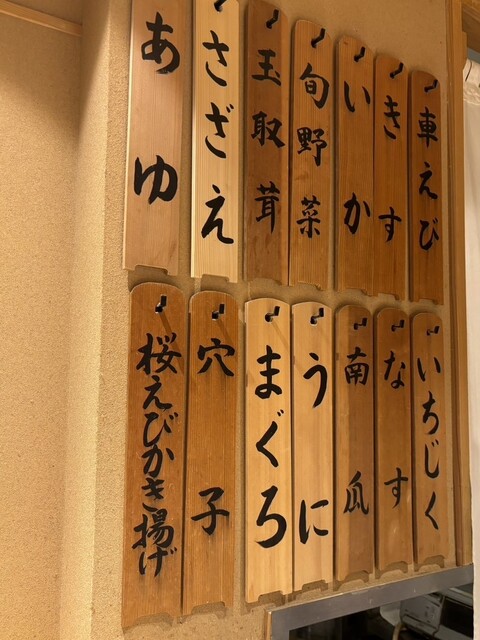 車えび
きす
いか
旬野菜
玉取茸
さざえ
あゆ
いちじく
なす
南瓜
うに
まぐろ
穴子
桜えびかき揚げ